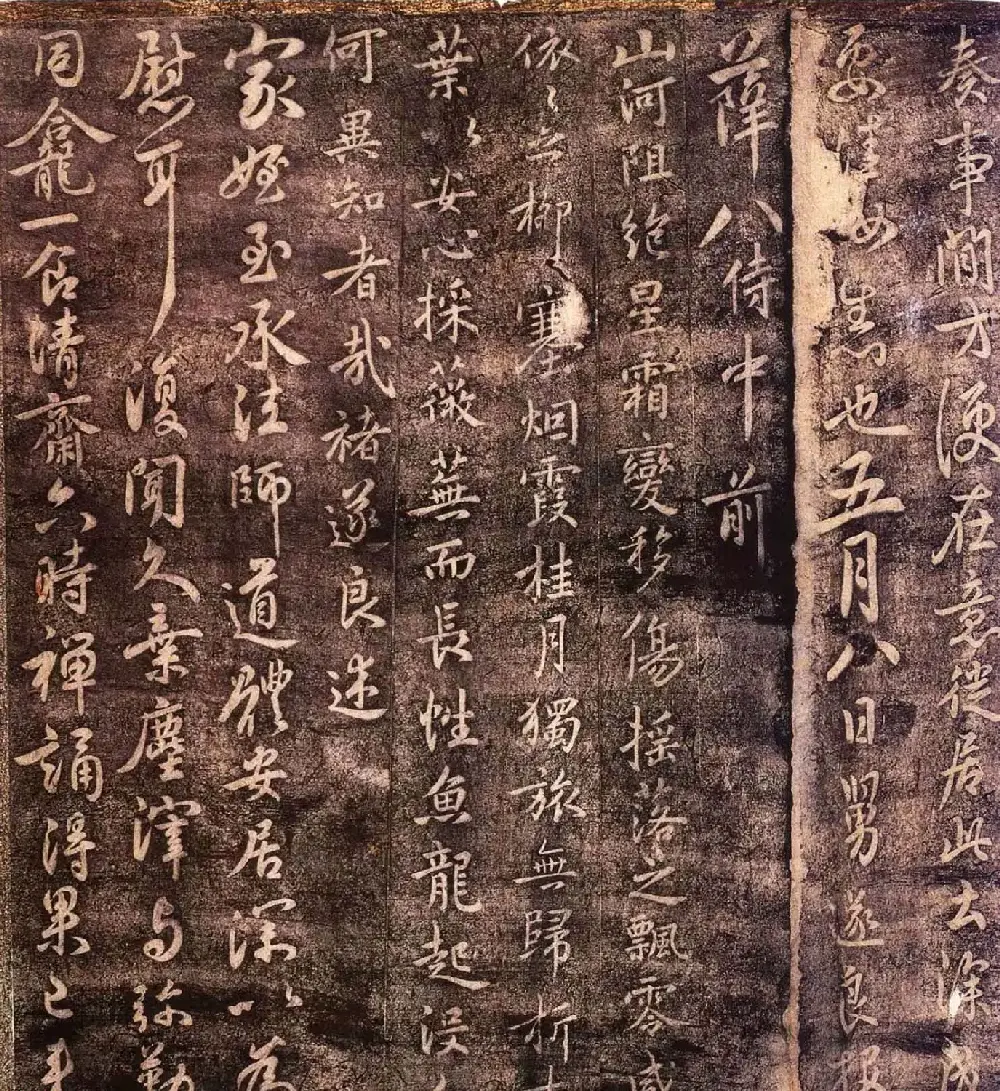 奏事閒方便在意從居此去深為
要也五月八日舅遂良報
薛八侍中前
山河阻絕星霜變移傷搖落之飄零感
依依之柳塞烟霞桂月獨旅無歸折木
葉以安心採薇蕪而長性魚龍起沒人
何異知者哉褚遂良述
家姪至承法師道體安居深以為
慰耳復聞久棄塵滓与弥勒
同龕一食清齋六時禪誦得果已来